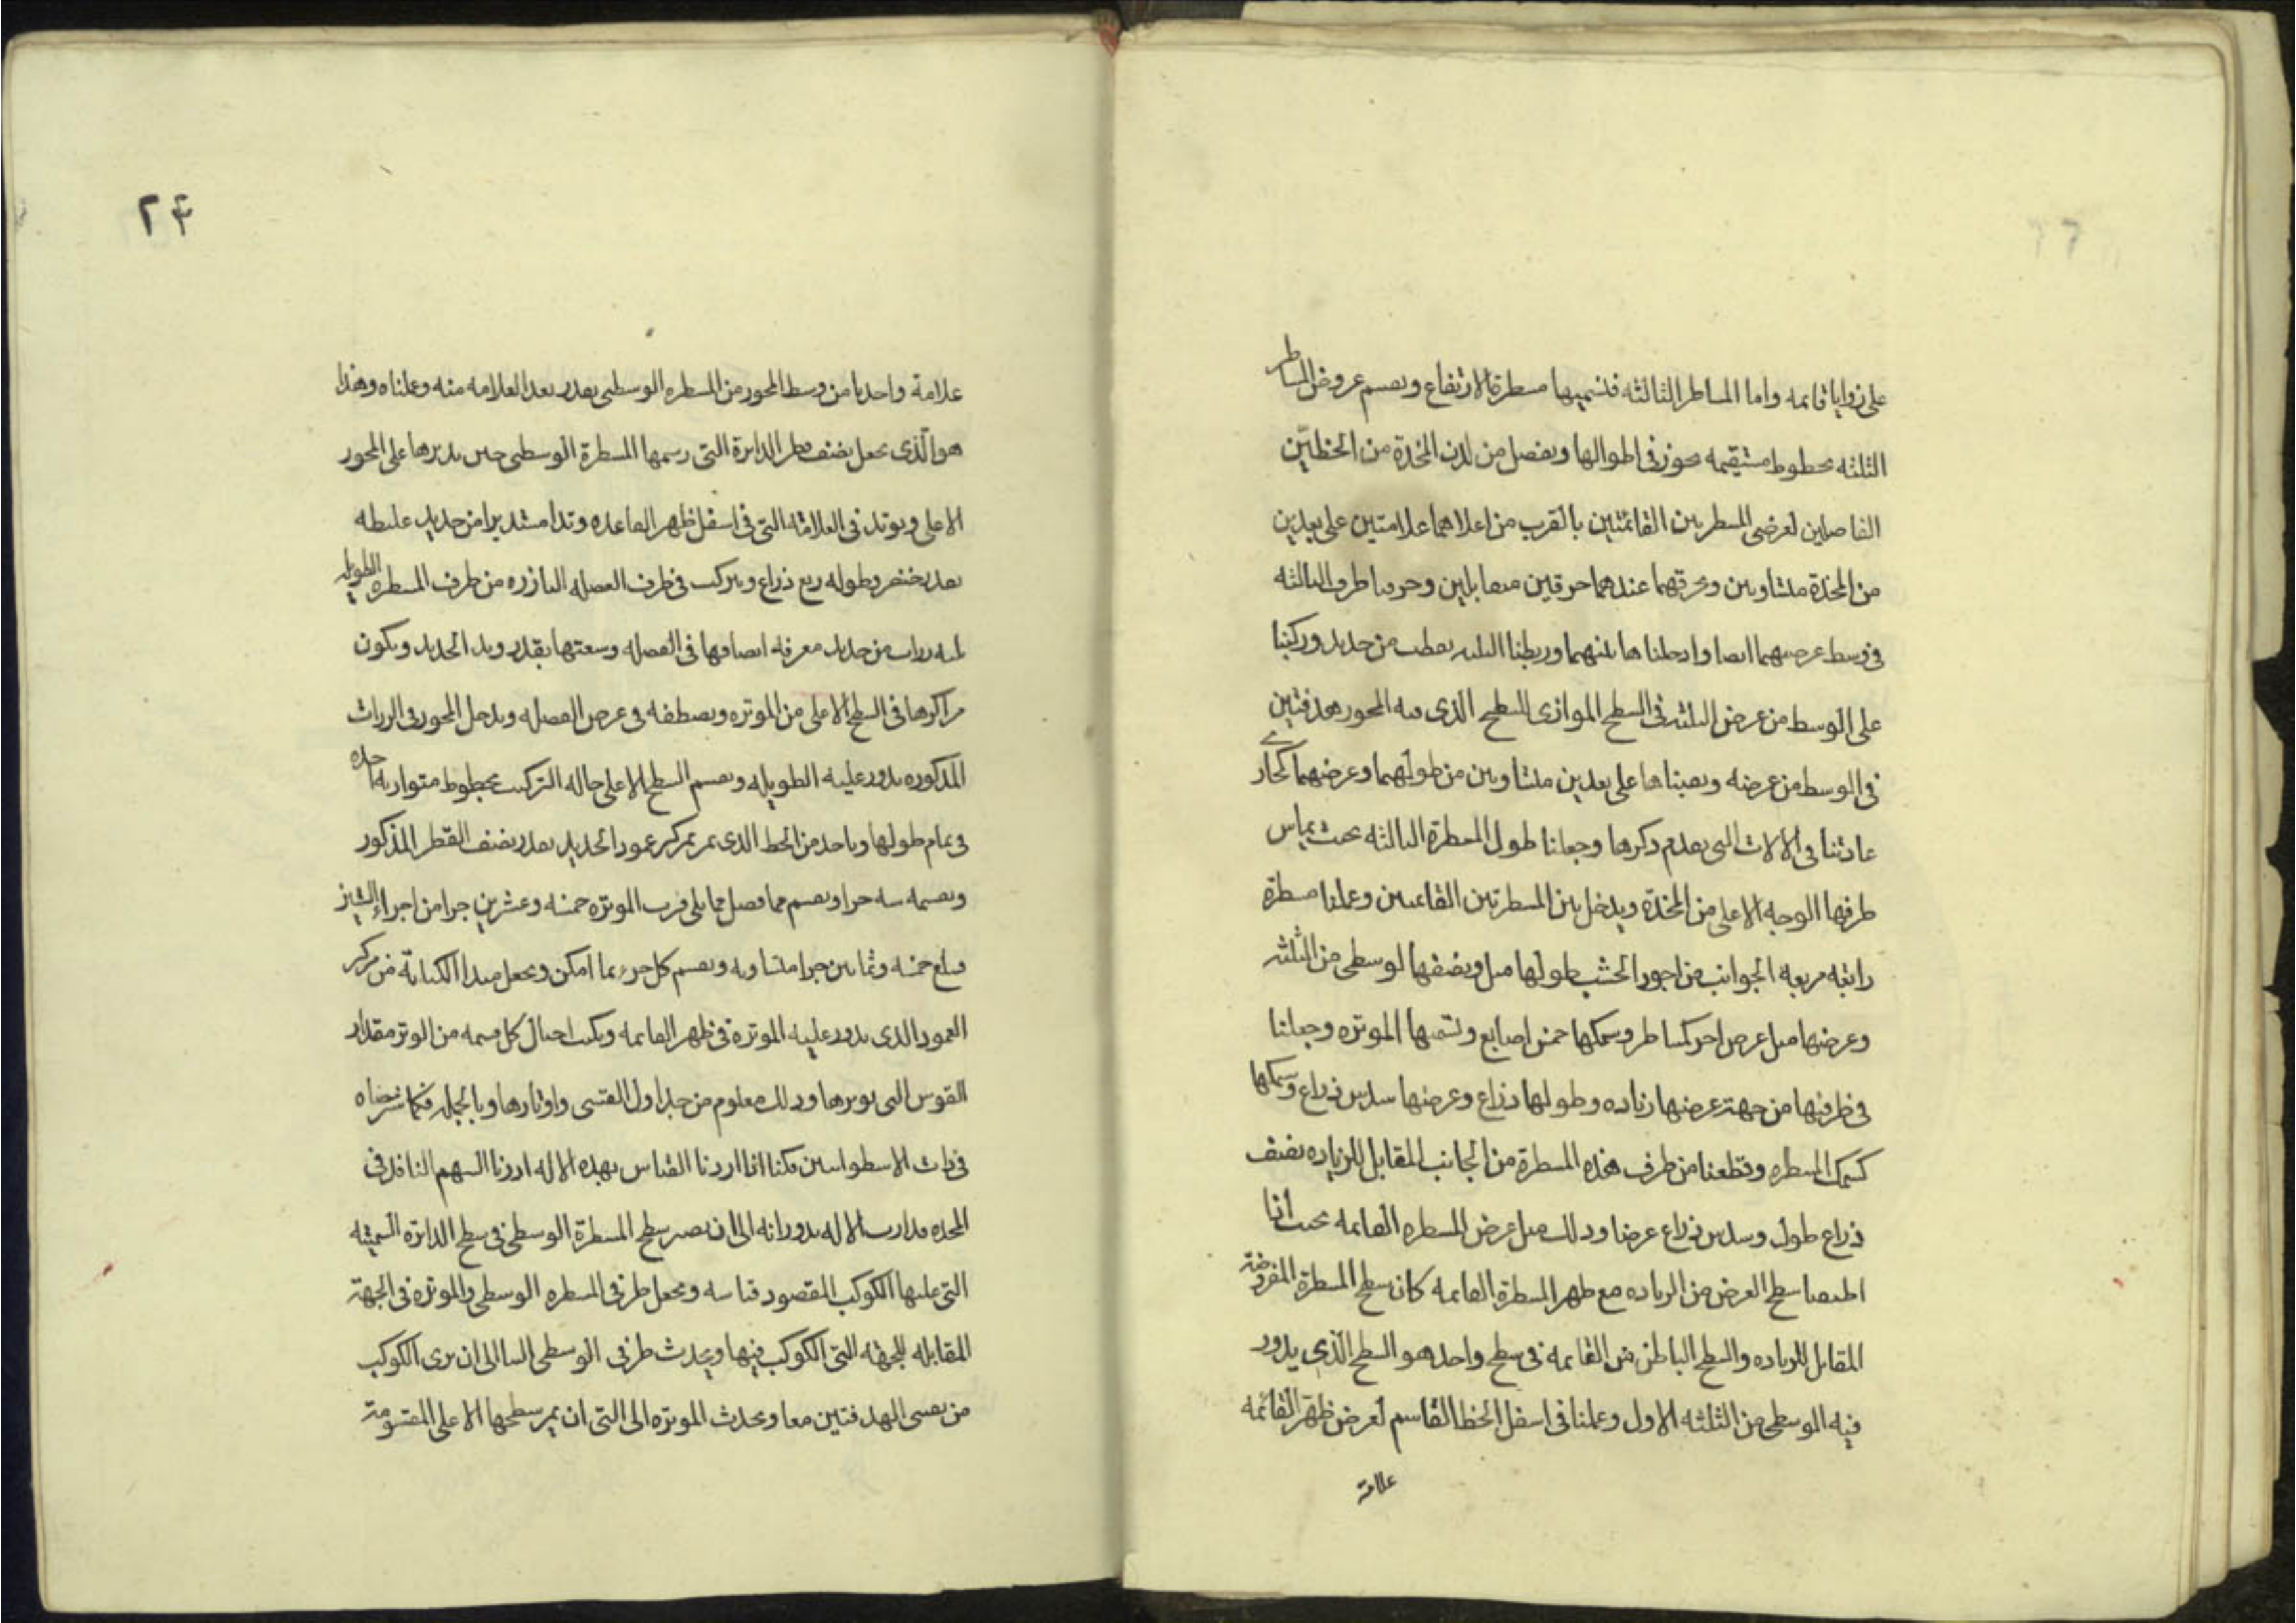 على زوايا قائمه واما المساطر الثالثه فنسميها مسطرة الارتفاع ونقسم عروض المساطر
الثلثه بخطوط مستقيمه تجوز فى اطوالها ونفصل من لدن المخدة من الخطيّن
الفاصلين لعرضى المسطرتين القائمتين بالقرب من اعلاهما علامتين على بعدين
من المخدة متساويين ونخرقهما عندهما خرقين متقابلين وخرقنا طرف الثالثه
فى وسط عرضيهما ايضا وادخلناها بينهما وربطنا الثلثه بقطب من حديد وركبنا
على الوسط من عرض الثلثه فى السطح الموازى للسطح الذى فيه المحور هدفتين
فى الوسط من عرضه ونصبناها على بعدين متساويين من طولهما وعرضهما كجارى
عادتنا فى الالات التى تقدم ذكرها وجعلنا طول المسطرة الثالثه بحيث يماس
طرفها الوجه الاعلى من المخدّة ويدخل بين المسطرتين القائمتين وعملنا مسطرة
رابعه مربعه الجوانب من اجود الخشب طولها مثل ونصفها لوسطى من الثلثه
وعرضها مثل عرض احد المساطر وسمكها خمس اصابع ونسميها الموتره وجعلنا
فى طرفيها من جهة عرضها زياده وطولها ذراع وعرضها سدس ذراع وسمكها
كسمك المسطره وقطعنا من طرف هذه المسطرة من الجانب المقابل للزياده نصف
ذراع طول وسدس ذراع عرضا وذلك مثل عرض المسطره القائمه بحيث اذا
اطبقنا سطح العرض من الزياده مع ظهر المسطرة القائمه كان سطح المسطرة المفروضة
المقابل للزياده والسطح الباطن من القائمه فى سطح واحد هو السطح الذى يدور
فيه الوسطى من الثلثه الاول وعملنا فى اسفل الخط القاسم لعرض ظهر القائمه
علامة
٢٤
علامة واحدنا من وسط المحور من المسطره الوسطى بقدر بعد العلامه منه وعلمناه وهذا
هو الّذى نجعل نصف قطر الدايرة التى رسمها المسطرة الوسطى حين نديرها على المحور
الاعلى ونوتد فى العلامة التى فى اسفل ظهر القاعده وتدا مستديرا من حديد غلظه
بقدر خنصر وطوله ربع ذراع ونركب فى طرف الفصله البارزه من طرف المسطره الطويله
ثلثه رزات من حديد مغرقه انصافها فى الفصله وسعتها بقدر وتد الحديد ويكون
مراكزها فى السطح الاعلى من الموتره ونصطفه فى عرض الفصله وندخل المحور فى الرزات
المذكوره يدور عليه الطويله ونقسم السطح الاعلى حاله التركيب بخطوط متوازيه اخذه
فى تمام طولها وناخذ من الخط الذى يمر بمركز عمود الحديد بقدر نصف القطر المذكور
ونقسمه ستين جزا ونقسم مما فصل مما يلى قرب الموتره خمسه وعشرين جزا من اجزاء الستين
فيبلغ خمسه وثمانين جزا متساويه ونقسم كل جزء بما امكن ونجعل مبدا الكتابة من مركز
العمود الذى يدور عليه الموتره فى ظهر القائمه ونكتب احيال كل قسمه من الوتر مقدار
القوس التى يوترها وذلك معلوم من جداول القسى واوتارها وبالجمله فكما شرحناه
فى ذات الاسطوانتين مكنا اذا اردنا القياس بهذه الاله ادرنا السهم النافذ فى
المخده فدارت الاله بدورانه الى ان يصير سطح المسطرة الوسطى فى سطح الدايرة السمتيه
التى عليها الكوكب المقصود قياسه ونجعل طرفى المسطره الوسطى والموتره فى الجهة
المقابله للجهه التى الكوكب فيها ونجذب طرفى الوسطى الينا الى ان نرى الكوكب
من ثقبى الهدفتين معا ونجذب الموتره الى التى ان يمر سطحها الاعلى المقسومة